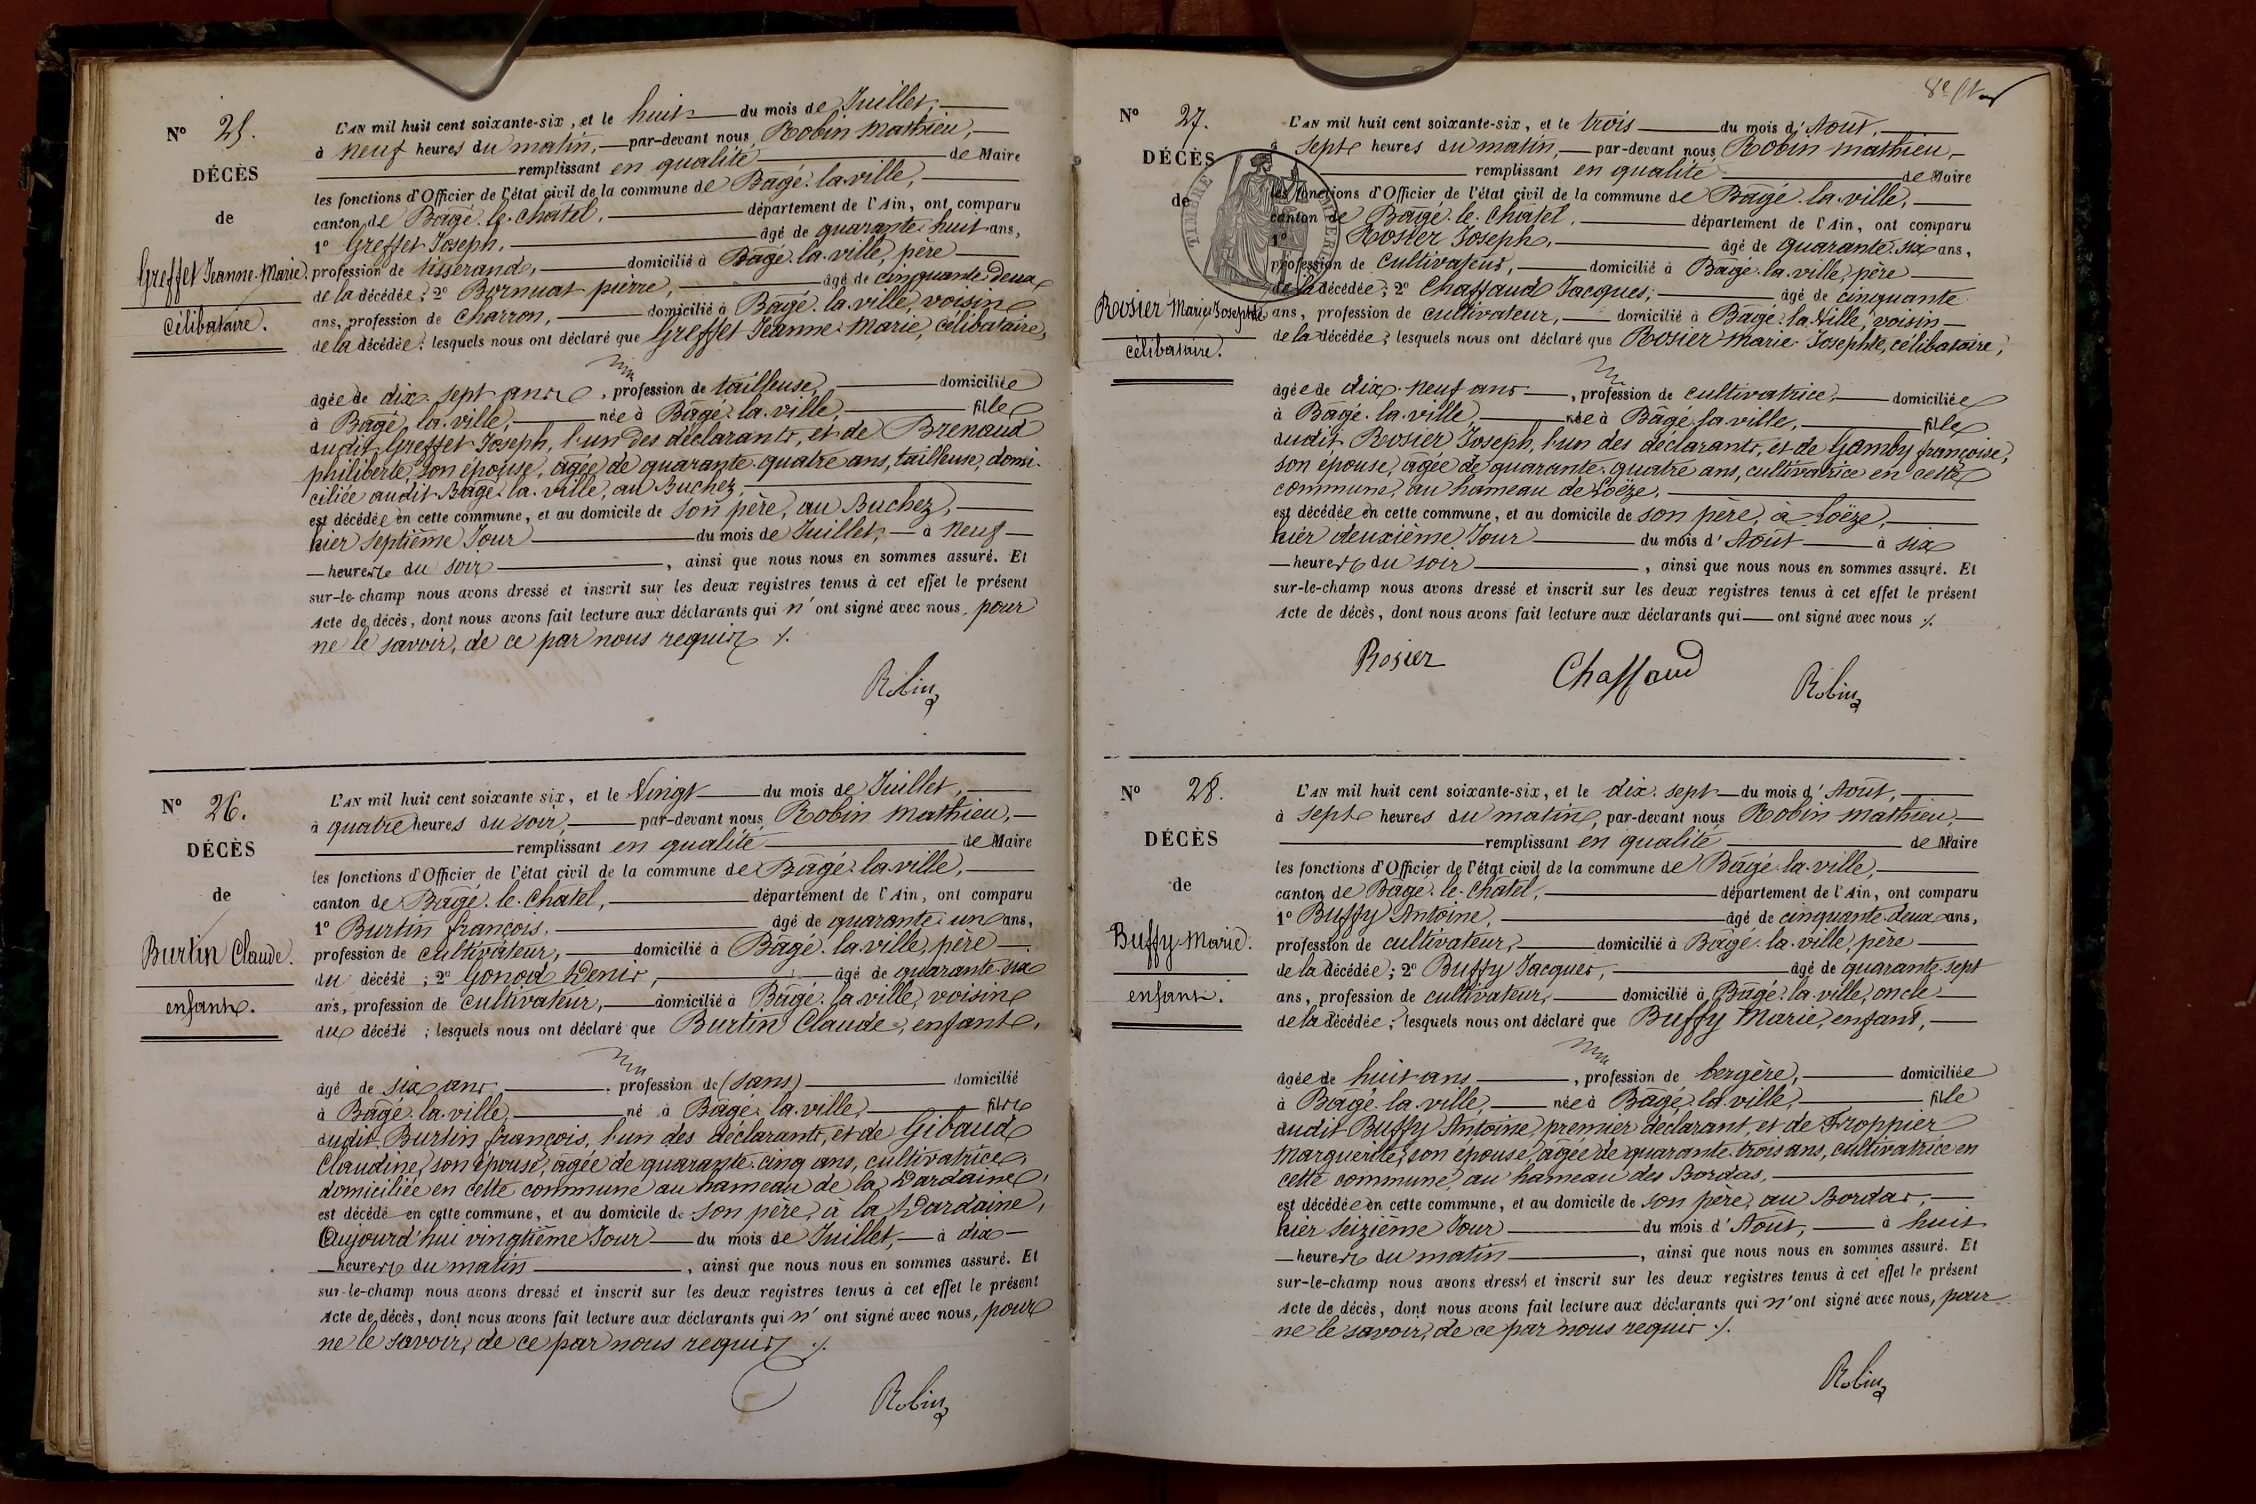 N° 25.
DÉCÈS
de
Greffet Jeanne-Marie.
célibataire.
L'AN mil huit cent soixante-six, et le huit du mois de Juillet,
à neuf heures du matin, par-devant nous Robin Mathieu,
remplissant en qualité de Maire
les fonctions d'Officier de l'état civil de la commune de Bâgé-la-ville,
canton de Bâgé-le-Châtel, département de l'Ain, ont comparu
1° Greffet Joseph, âgé de quarante-huit ans,
profession de tisserand, domicilié à Bâgé-la-ville, père
de la décédée; 2° Bornuat pierre, âgé de cinquante-deux
ans, profession de charron, domicilié à Bâgé-la-ville, voisin
de la décédée; lesquels nous ont déclaré que Greffet Jeanne-Marie, célibataire,
âgée de dix-sept ans, profession de tailleuse, domiciliée
à Bâgé-la-ville, née à Bâgé-la-ville, fille
dudit Greffet Joseph, l'un des déclarants, et de Brenaud
philiberte, son épouse, âgée de quarante-quatre ans, tailleuse, domi-
ciliée audit Bâgé-la-ville, au Buchez,
est décédée en cette commune, et au domicile de son père, au Buchez,
hier septième Jour du mois de Juillet, à neuf
heures du soir, ainsi que nous nous en sommes assuré. Et
sur-le-champ nous avons dressé et inscrit sur les deux registres tenus à cet effet le présent
Acte de décès, dont nous avons fait lecture aux déclarants qui n'ont signé avec nous, pour
ne le savoir, de ce par nous requis ./.
Robin
N° 26.
DÉCÈS
de
Burtin Claude.
enfant.
L'AN mil huit cent soixante six, et le Vingt du mois de Juillet,
à quatre heures du soir, par-devant nous Robin Mathieu,
remplissant en qualité de Maire
les fonctions d'Officier de l'état civil de la commune de Bâgé-la-ville,
canton de Bâgé-le-Châtel, département de l'Ain, ont comparu
1° Burtin françois, âgé de quarante-un ans,
profession de cultivateur, domicilié à Bâgé-la-ville, père
du décédé; 2° Gonod Denis, âgé de quarante-six
ans, profession de cultivateur, domicilié à Bâgé-la-ville, voisin
du décédé; lesquels nous ont déclaré que Burtin Claude, enfant,
âgé de six ans, profession de (sans) domicilié
à Bâgé-la-ville, né à Bâgé-la-ville, fils
dudit Burtin françois, l'un des déclarants, et de Gibaud
Claudine, son épouse, âgée de quarante-cinq ans, cultivatrice,
domiciliée en cette commune au hameau de la Dardaine,
est décédé en cette commune, et au domicile de son père, à la Dardaine,
Aujourd'hui vingtième Jour du mois de Juillet, à dix
heures du matin, ainsi que nous nous en sommes assuré. Et
sur-le-champ nous avons dressé et inscrit sur les deux registres tenus à cet effet le présent
Acte de décès, dont nous avons fait lecture aux déclarants qui n'ont signé avec nous, pour
ne le savoir, de ce par nous requis ./.
Robin
N° 27.
DÉCÈS
de
TIMBRE
Rosier Marie-Josephte
célibataire.
L'AN mil huit cent soixante-six, et le trois du mois d'Août,
à sept heures du matin, par-devant nous Robin Mathieu,
remplissant en qualité de Maire
les fonctions d'Officier de l'état civil de la commune de Bâgé-la-ville,
canton de Bâgé-le-Châtel, département de l'Ain, ont comparu
1° Rosier Joseph, âgé de quarante-six ans,
profession de cultivateur, domicilié à Bâgé-la-ville, père
de la décédée; 2° Chaffaud Jacques, âgé de cinquante
ans, profession de cultivateur, domicilié à Bâgé-la-Ville, voisin
de la décédée; lesquels nous ont déclaré que Rosier Marie-Josephte, célibataire,
âgée de dix-neuf ans, profession de cultivatrice, domiciliée
à Bâgé-la-ville, née à Bâgé-la-ville, fille
dudit Rosier Joseph, l'un des déclarants, et de Gamby françoise,
son épouse, âgée de quarante-quatre ans, cultivatrice en cette
commune, au hameau de Loëze,
est décédée en cette commune, et au domicile de son père, à Loëze,
hier deuxième Jour du mois d'Août à six
heures du soir, ainsi que nous nous en sommes assuré. Et
sur-le-champ nous avons dressé et inscrit sur les deux registres tenus à cet effet le présent
Acte de décès, dont nous avons fait lecture aux déclarants qui ont signé avec nous ./.
Rosier Chaffaud Robin
N° 28.
DÉCÈS
de
Buffy Marie.
enfant.
L'AN mil huit cent soixante-six, et le dix-sept du mois d'Août,
à sept heures du matin, par-devant nous Robin Mathieu,
remplissant en qualité de Maire
les fonctions d'Officier de l'état civil de la commune de Bâgé-la-ville,
canton de Bâgé-le-Châtel, département de l'Ain, ont comparu
1° Buffy Antoine, âgé de cinquante-deux ans,
profession de cultivateur, domicilié à Bâgé-la-ville, père
de la décédée; 2° Buffy Jacques, âgé de quarante-sept
ans, profession de cultivateur, domicilié à Bâgé-la-ville, oncle
de la décédée; lesquels nous ont déclaré que Buffy Marie, enfant,
âgée de huit ans, profession de bergère, domiciliée
à Bâgé-la-ville, née à Bâgé-la-ville, fille
dudit Buffy Antoine, premier déclarant, et de Froppier
Marguerite, son épouse, âgée de quarante-trois ans, cultivatrice en
cette commune, au hameau des Bordas,
est décédée en cette commune, et au domicile de son père, au Bordas,
hier seizième Jour du mois d'Août, à huit
heures du matin, ainsi que nous nous en sommes assuré. Et
sur-le-champ nous avons dressé et inscrit sur les deux registres tenus à cet effet le présent
Acte de décès, dont nous avons fait lecture aux déclarants qui n'ont signé avec nous, pour
ne le savoir, de ce par nous requis ./.
Robin